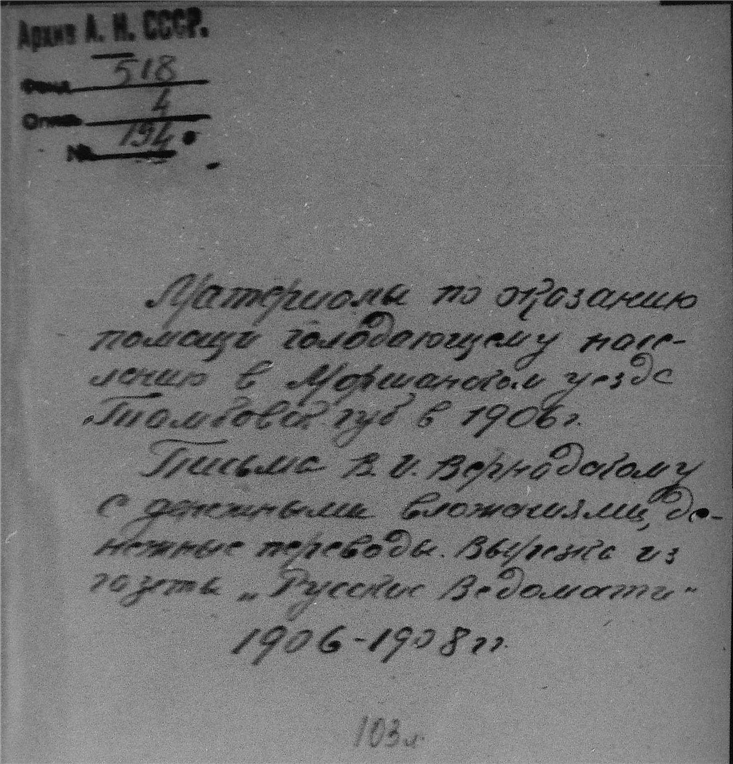 Архив А. Н. СССР.
Фонд 518
Опись 4
№ 194
Материалы по оказанию
помощи голодающему насе-
лению в Моршанском уезде
Тамбовск. губ в 1906г.
Письма В. И. Вернадскому
с денежными вложениями, де-
нежные переводы. Вырезка из
газеты „Русские Ведомости"
1906-1908 гг.
103 л.